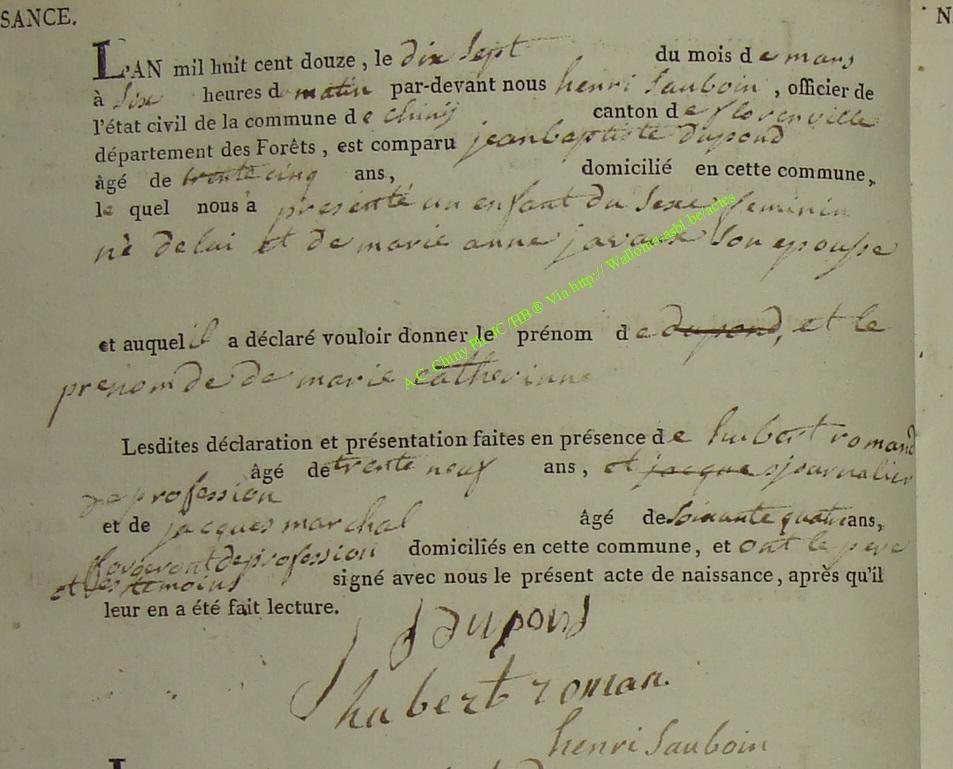 SANCE.
N
L'AN mil huit cent douze, le dix sept du mois de mars
à six heures d matin par-devant nous henri Sauboin, officier de
l'état civil de la commune de chiny canton de florenville
département des Forêts, est comparu jeanbaptiste dupond
âgé de trente cinq ans, domicilié en cette commune,
le quel nous a présenté un enfant du sexe feminin
né de lui et de marie anne javaux son epouse
et auquel il a déclaré vouloir donner le prénom de dupond, et le
prenom de de marie catherinne
Lesdites déclaration et présentation faites en présence de hubert romand
âgé de trente neuf ans, et jacques journalier
de profession
et de jacques marchal âgé de soixante quatre ans,
de profession domiciliés en cette commune, et ont le pere
et les temoins signé avec nous le présent acte de naissance, après qu'il
leur en a été fait lecture.
J dupond
hubert roman.
henri Sauboin
A.C. Chiny Ph JC/HB® Via http:// Wallonia-asbl.be/actes